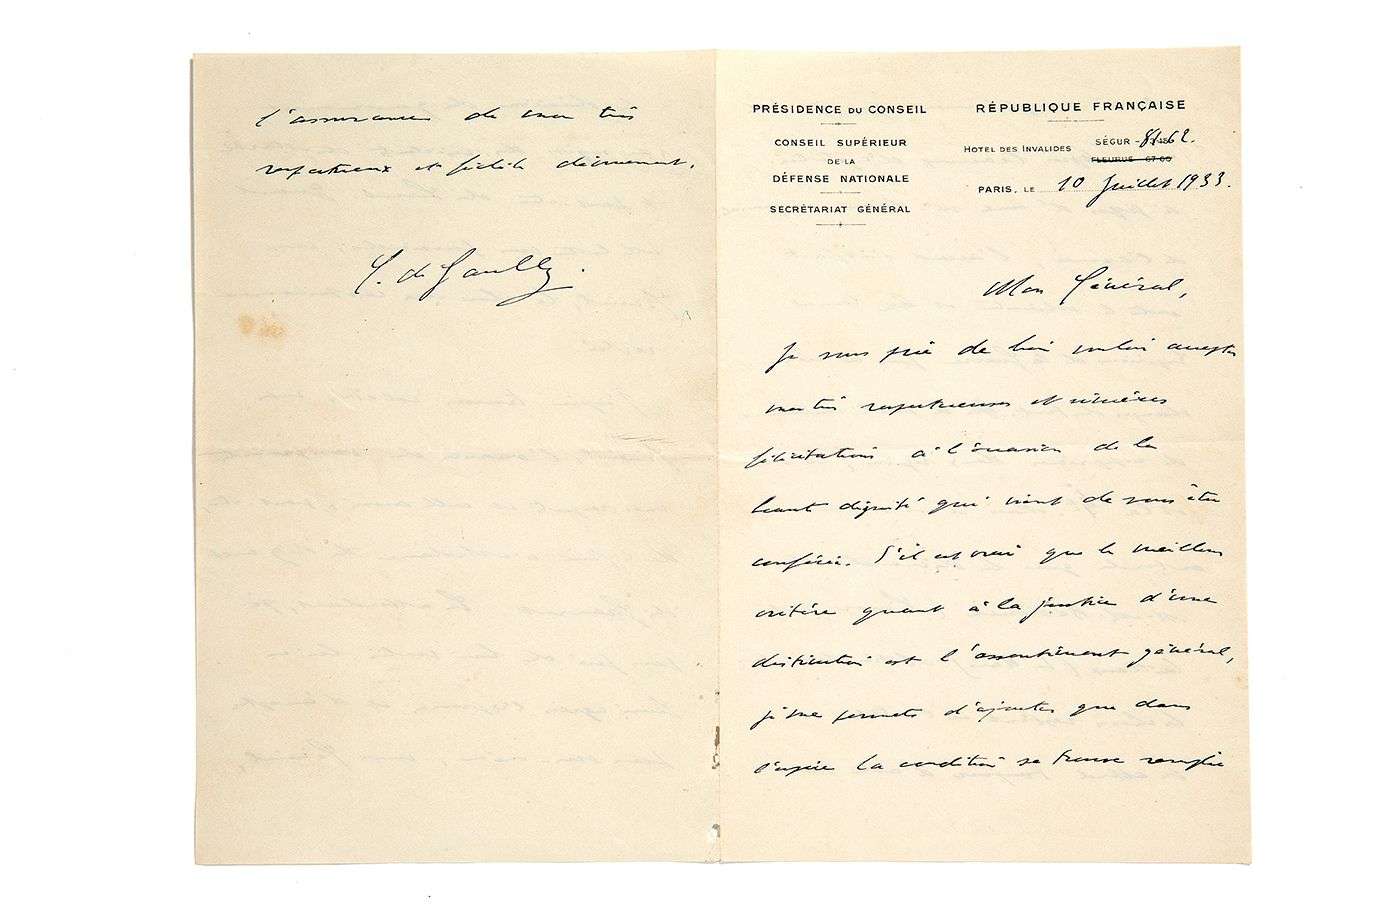 PRÉSIDENCE DU CONSEIL
CONSEIL SUPÉRIEUR
DE LA
DÉFENSE NATIONALE
SECRÉTARIAT GÉNÉRAL
RÉPUBLIQUE FRANÇAISE
HOTEL DES INVALIDES SÉGUR - 81-62.
FLEURUS
PARIS, LE 10 Juillet 1933.
Mon Général,
Je vous prie de bien vouloir accepter
mes très respectueuses et sincères
félicitations à l'occasion de la
haute dignité qui vient de vous être
conférée. S'il est vrai que le meilleur
critère quant à la justice d'une
distinction est l'assentiment général,
je me permets d'ajouter que dans
l'espèce la condition se trouve remplie
l'assurance de mon très
respectueux et fidèle dévouement.
C. de Gaulle.